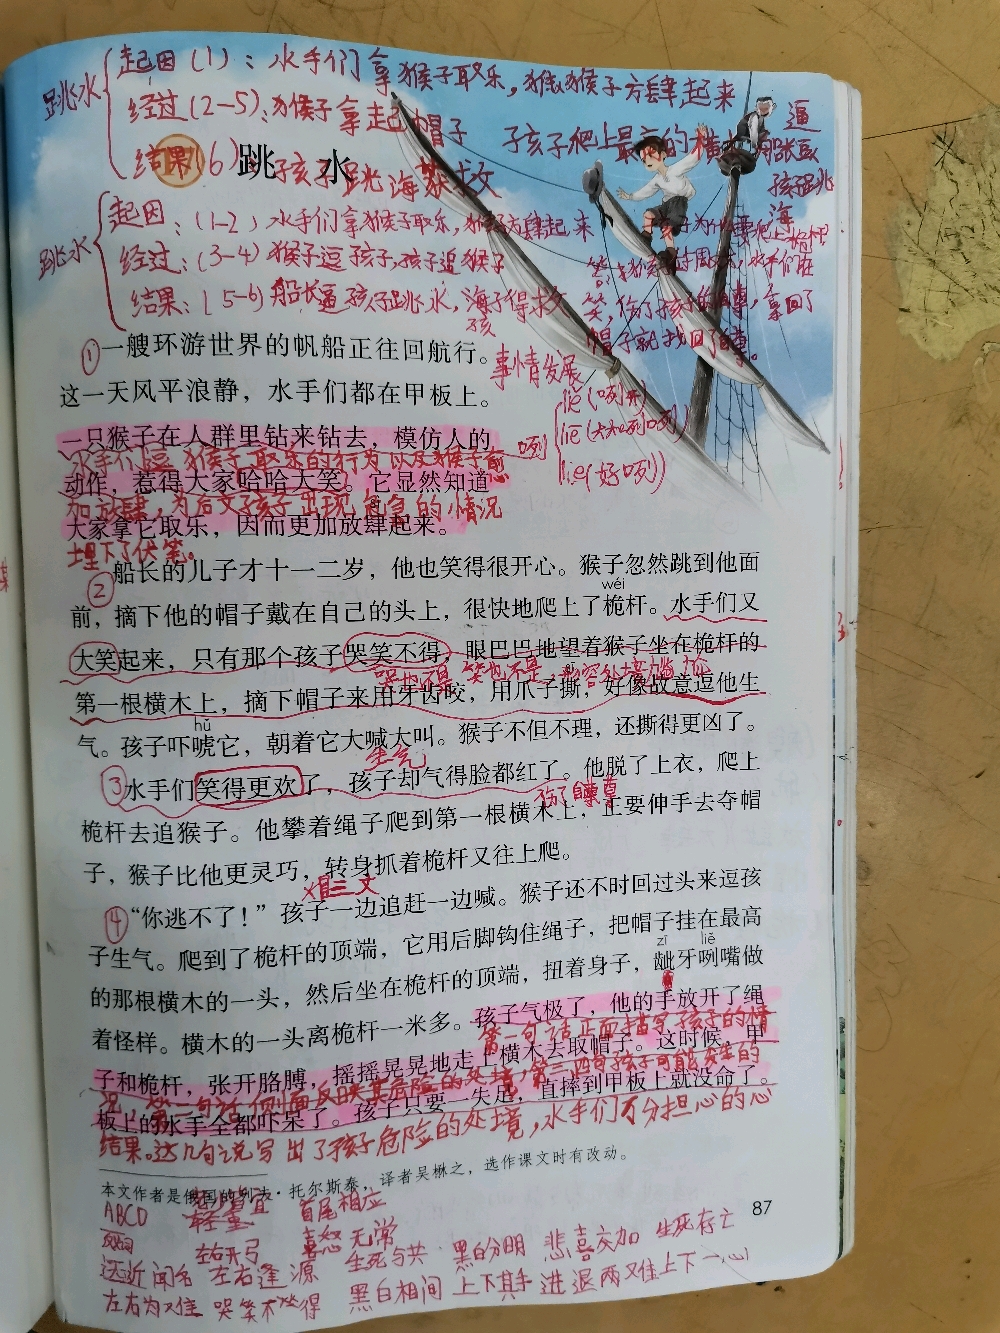 跳水
起因(1)：水手们拿猴子取乐，猴子放肆起来
经过(2-5)：猴子拿起帽子 孩子爬上最高的横木
结果(6) 孩子跳海获救
船长逼
孩子跳
海
跳水
跳水
起因：(1-2)水手们拿猴子取乐，猴子放肆起来
经过：(3-4)猴子逗孩子，孩子追猴子
结果：(5-6)船长逼孩子跳水，海子得救
孩
笑，伤了孩子自尊，拿回了
帽子就找回了自尊。
事情发展
①一艘环游世界的帆船正往回航行。
这一天风平浪静，水手们都在甲板上。
咧
liě(咧开)
liē(大大咧咧)
lie(好咧)
一只猴子在人群里钻来钻去，模仿人的
水手们逗猴子取乐的行为以及猴子愈
动作，惹得大家哈哈大笑。它显然知道
加放肆，为后文孩子出现危急的情况
大家拿它取乐，因而更加放肆起来。
埋下了伏笔。
②船长的儿子才十一二岁，他也笑得很开心。猴子忽然跳到他面
wéi
前，摘下他的帽子戴在自己的头上，很快地爬上了桅杆。水手们又
大笑起来，只有那个孩子哭笑不得，眼巴巴地望着猴子坐在桅杆的
哭也不是，笑也不是，形容处境尴尬
第一根横木上，摘下帽子来用牙齿咬，用爪子撕，好像故意逗他生
hǔ
气。孩子吓唬它，朝着它大喊大叫。猴子不但不理，还撕得更凶了。
生气
③水手们笑得更欢了，孩子却气得脸都红了。他脱了上衣，爬上
伤了自尊
桅杆去追猴子。他攀着绳子爬到第一根横木上，正要伸手去夺帽
子，猴子比他更灵巧，转身抓着桅杆又往上爬。
④“你逃不了！”孩子一边追赶一边喊。猴子还不时回过头来逗孩
子生气。爬到了桅杆的顶端，它用后脚钩住绳子，把帽子挂在最高
zī liě
的那根横木的一头，然后坐在桅杆的顶端，扭着身子，龇牙咧嘴做
着怪样。横木的一头离桅杆一米多。孩子气极了，他的手放开了绳
第一句话正面描写孩子的情
子和桅杆，张开胳膊，摇摇晃晃地走上横木去取帽子。这时候，甲
况，第二句话侧面反映其危险的处境，第三四句孩子可能发生的
板上的水手全都吓呆了。孩子只要一失足，直摔到甲板上就没命了。
结果。这几句话写出了孩子危险的处境，水手们万分担心的心
本文作者是俄国的列夫·托尔斯泰，译者吴楙之，选作课文时有改动。
87
ABCD 轻重 首尾相应
反词 左右开弓 喜怒无常
远近闻名 左右逢源 生死与共 黑白分明 悲喜交加 生死存亡
左右为难 哭笑不得 黑白相间 上下其手 进退两难 上下一心